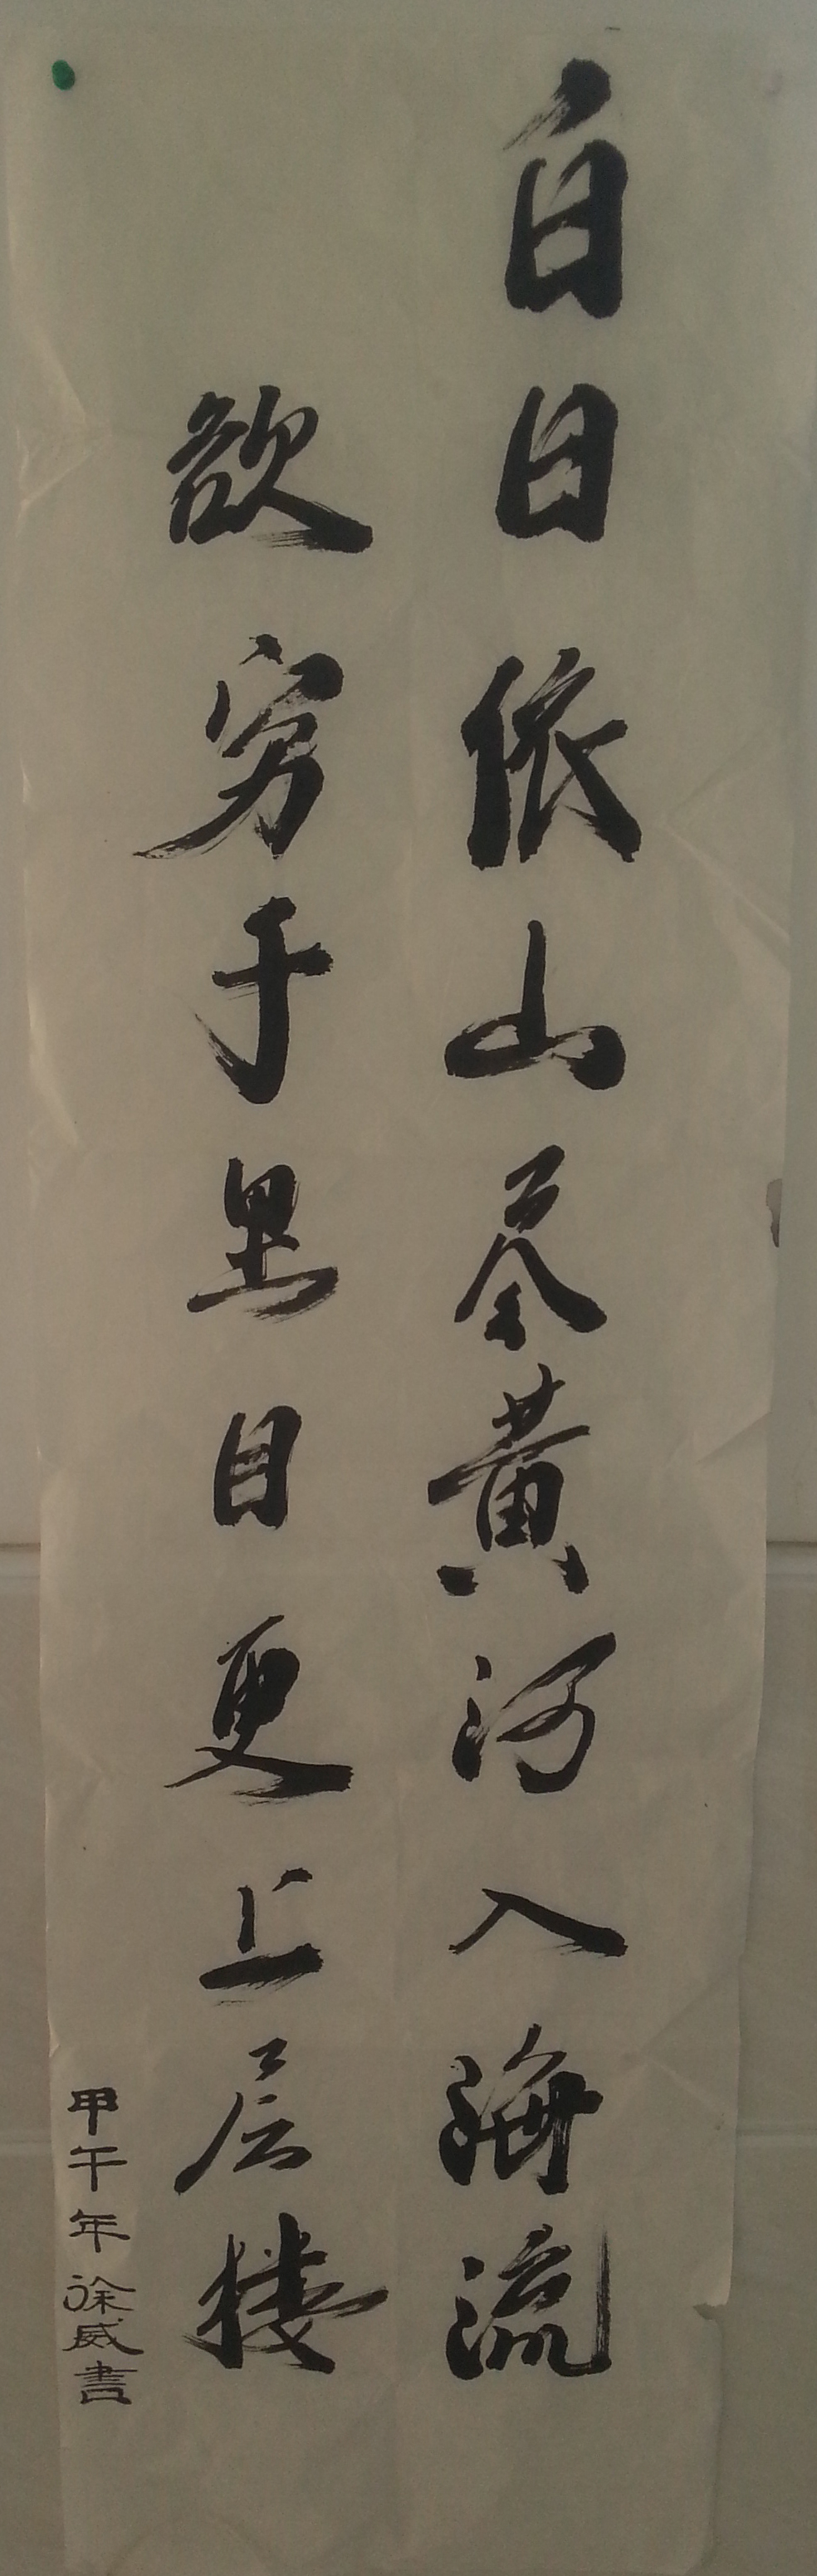 白日依山尽黄河入海流
欲穷千里目更上层楼
甲午年徐威書